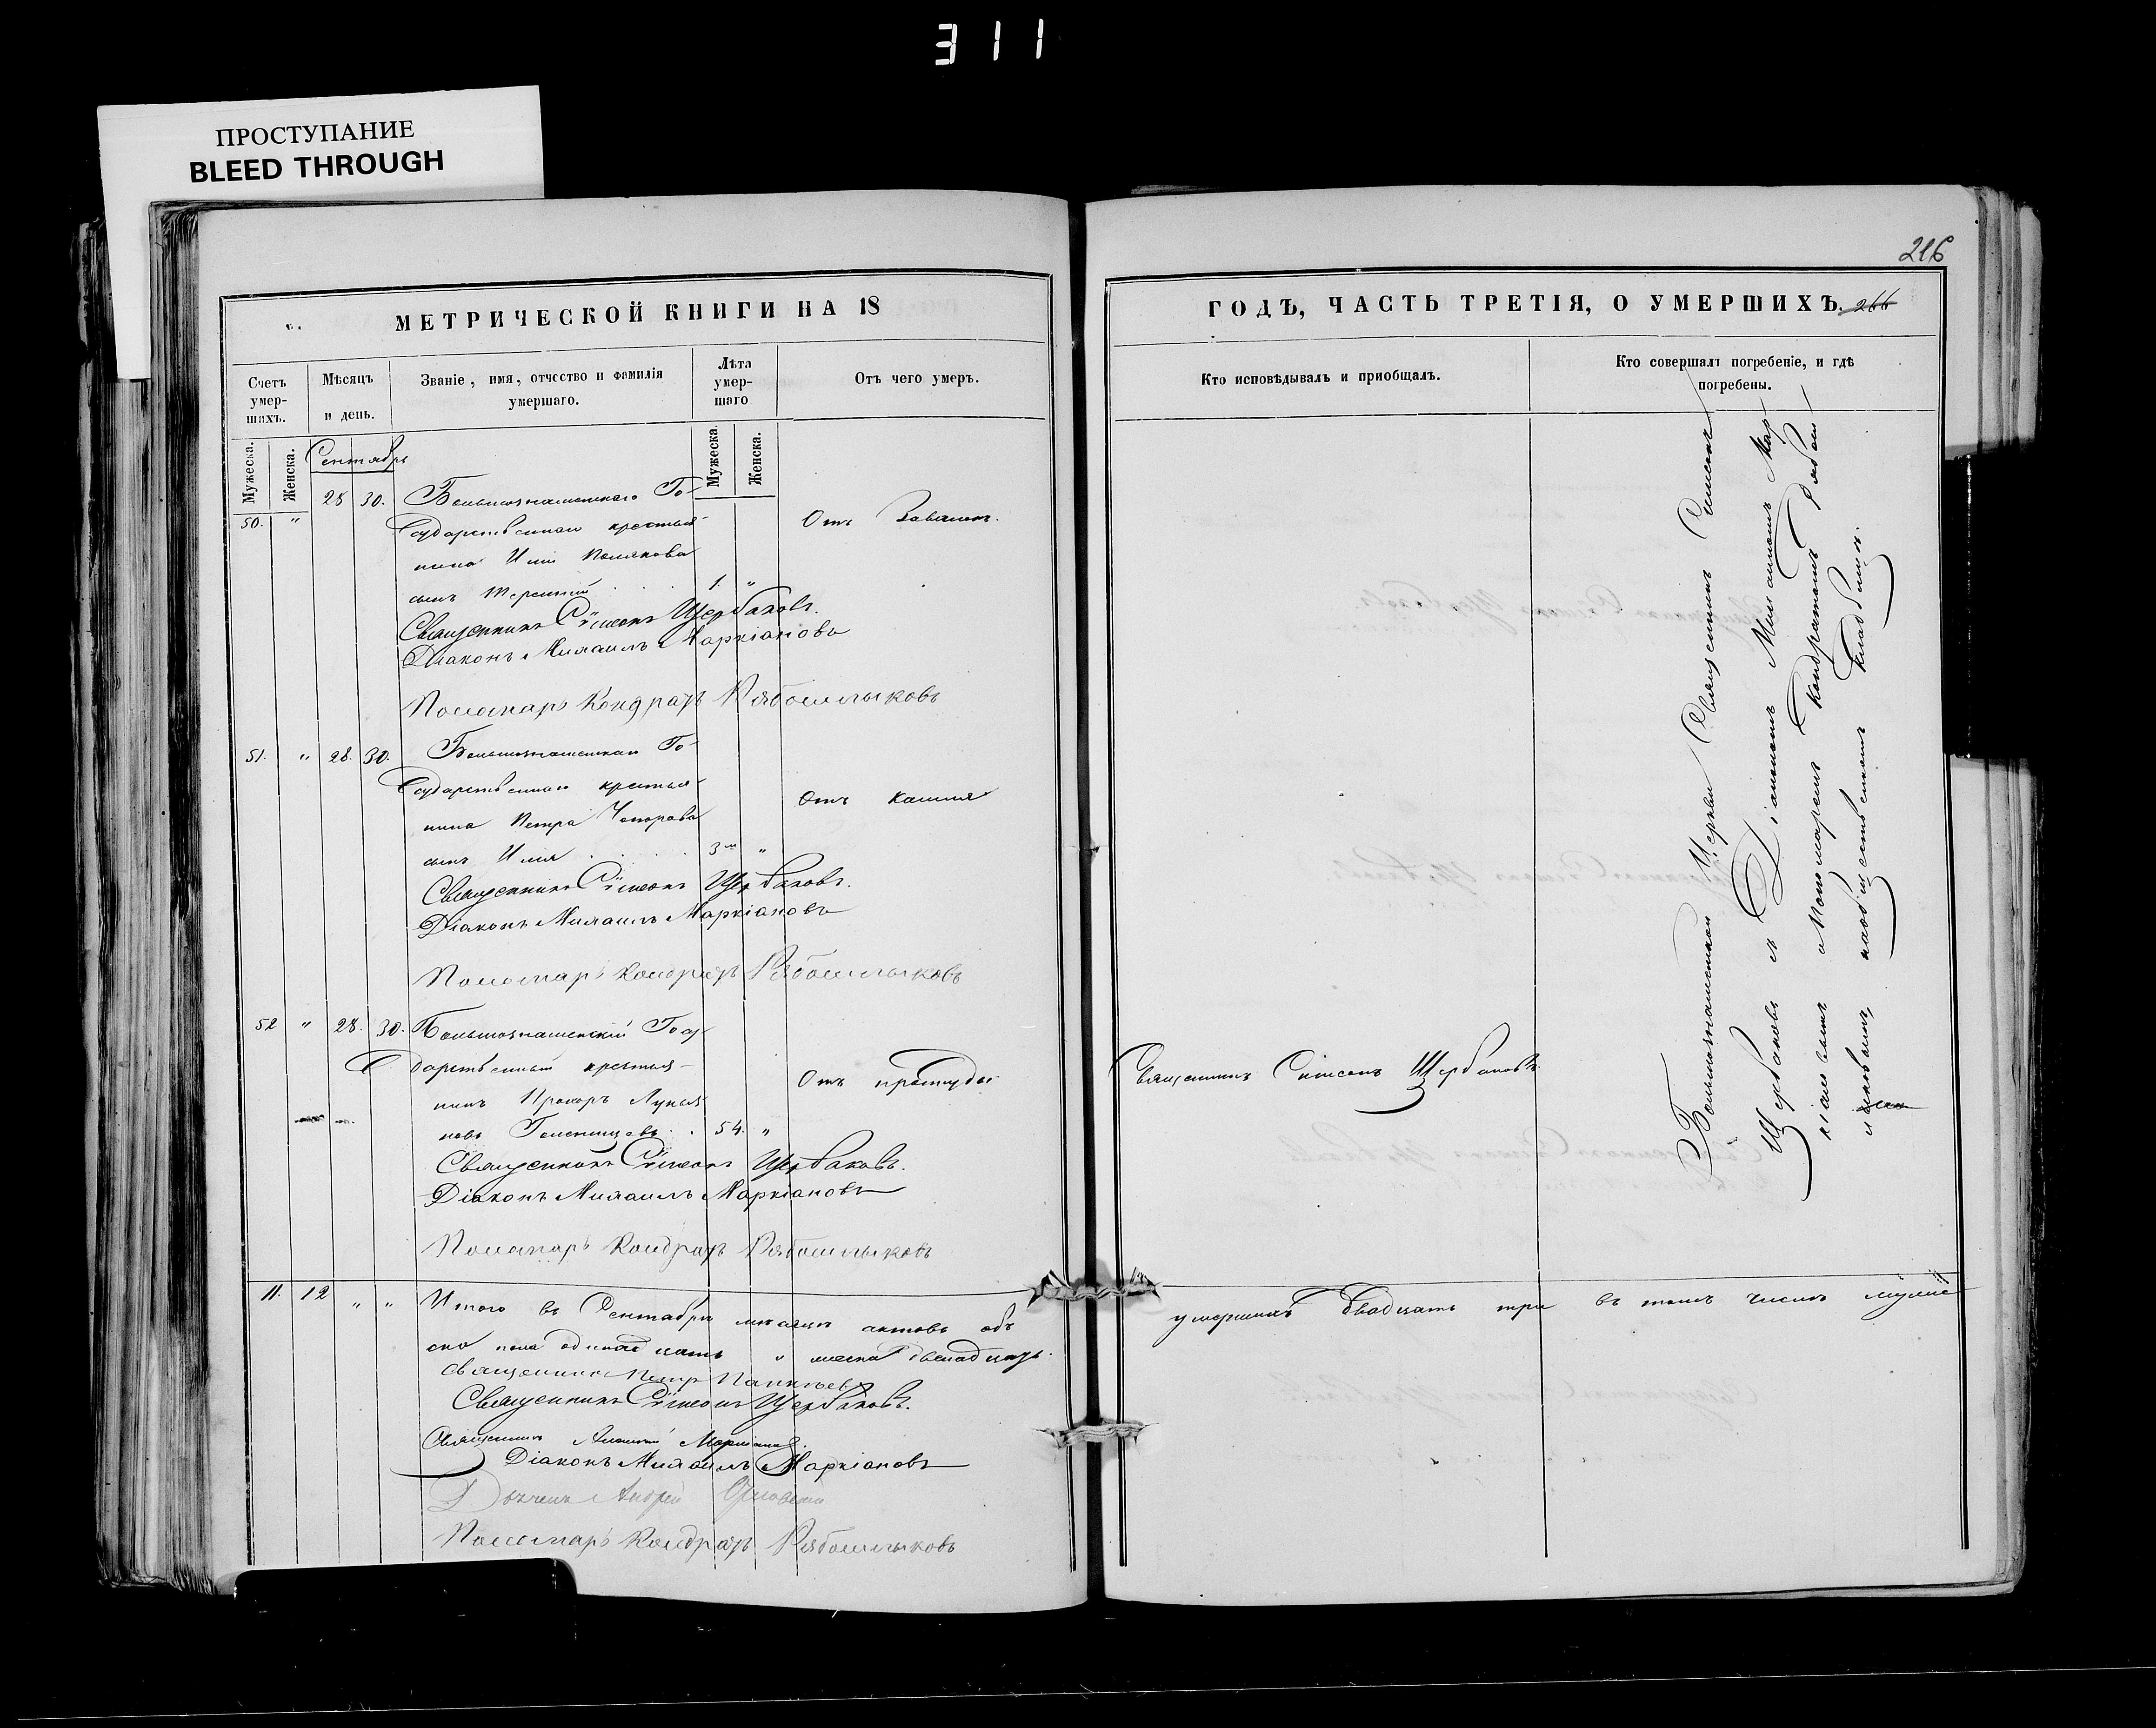 311
ПРОСТУПАНИЕ
BLEED THROUGH
216
МЕТРИЧЕСКОЙ КНИГИ НА 18
ГОДЪ, ЧАСТЬ ТРЕТІЯ, О УМЕРШИХЪ. 266
Счетъ умер-шихъ.
Мѣсяцъ и день.
Званіе, имя, отчество и фамилія умершаго.
Лѣта умер-шаго
Отъ чего умеръ.
Кто исповѣдывалъ и пріобщалъ.
Кто совершалъ погребеніе, и гдѣ погребены.
Мужеска. Женска.
Мужеска. Женска.
Сентябрь
50. " 28 30. Го-
сударственнаго крестья-
нина Ильи Полякова
сынъ Терентій 1. "
Отъ
Священникъ Сѵмеонъ Щербаковъ.
Діаконъ Михаилъ Маркіановъ
Пономарь Кондратъ Рябошлыковъ
51. " 28. 30. Го-
сударственнаго крестья-
нина Петра
сынъ Илья 3 м "
Отъ кашля
Священникъ Сѵмеонъ Щербаковъ.
Діаконъ Михаилъ Маркіановъ
Пономарь Кондратъ Рябошлыковъ
52 " 28. 30. Госу-
дарственный крестья-
нинъ Прохоръ Лукья-
новъ Голенищевъ. 54. "
Отъ простуды
Священникъ Симеонъ Щербаковъ
Священникъ Сѵмеонъ Щербаковъ.
Діаконъ Михаилъ Маркіановъ
Пономарь Кондратъ Рябошлыковъ
Церкви Священникъ Симеонъ
Щербаковъ съ Діакономъ Михаиломъ Мар-
кіановымъ и Пономаремъ Кондратомъ Рябош-
лыковымъ, на общественномъ кладбищѣ.
11. 12 " " Итого въ Сентябрѣ мѣсяцѣ актовъ объ умершихъ двадцать три въ томъ числѣ мужес-
ска пола одинадцать и женска двенадцать.
Священникъ Петръ
Священникъ Сѵмеонъ Щербаковъ.
Священникъ Маркіановъ.
Діаконъ Михаилъ Маркіановъ
Дьячекъ Андрей
Пономарь Кондратъ Рябошлыковъ